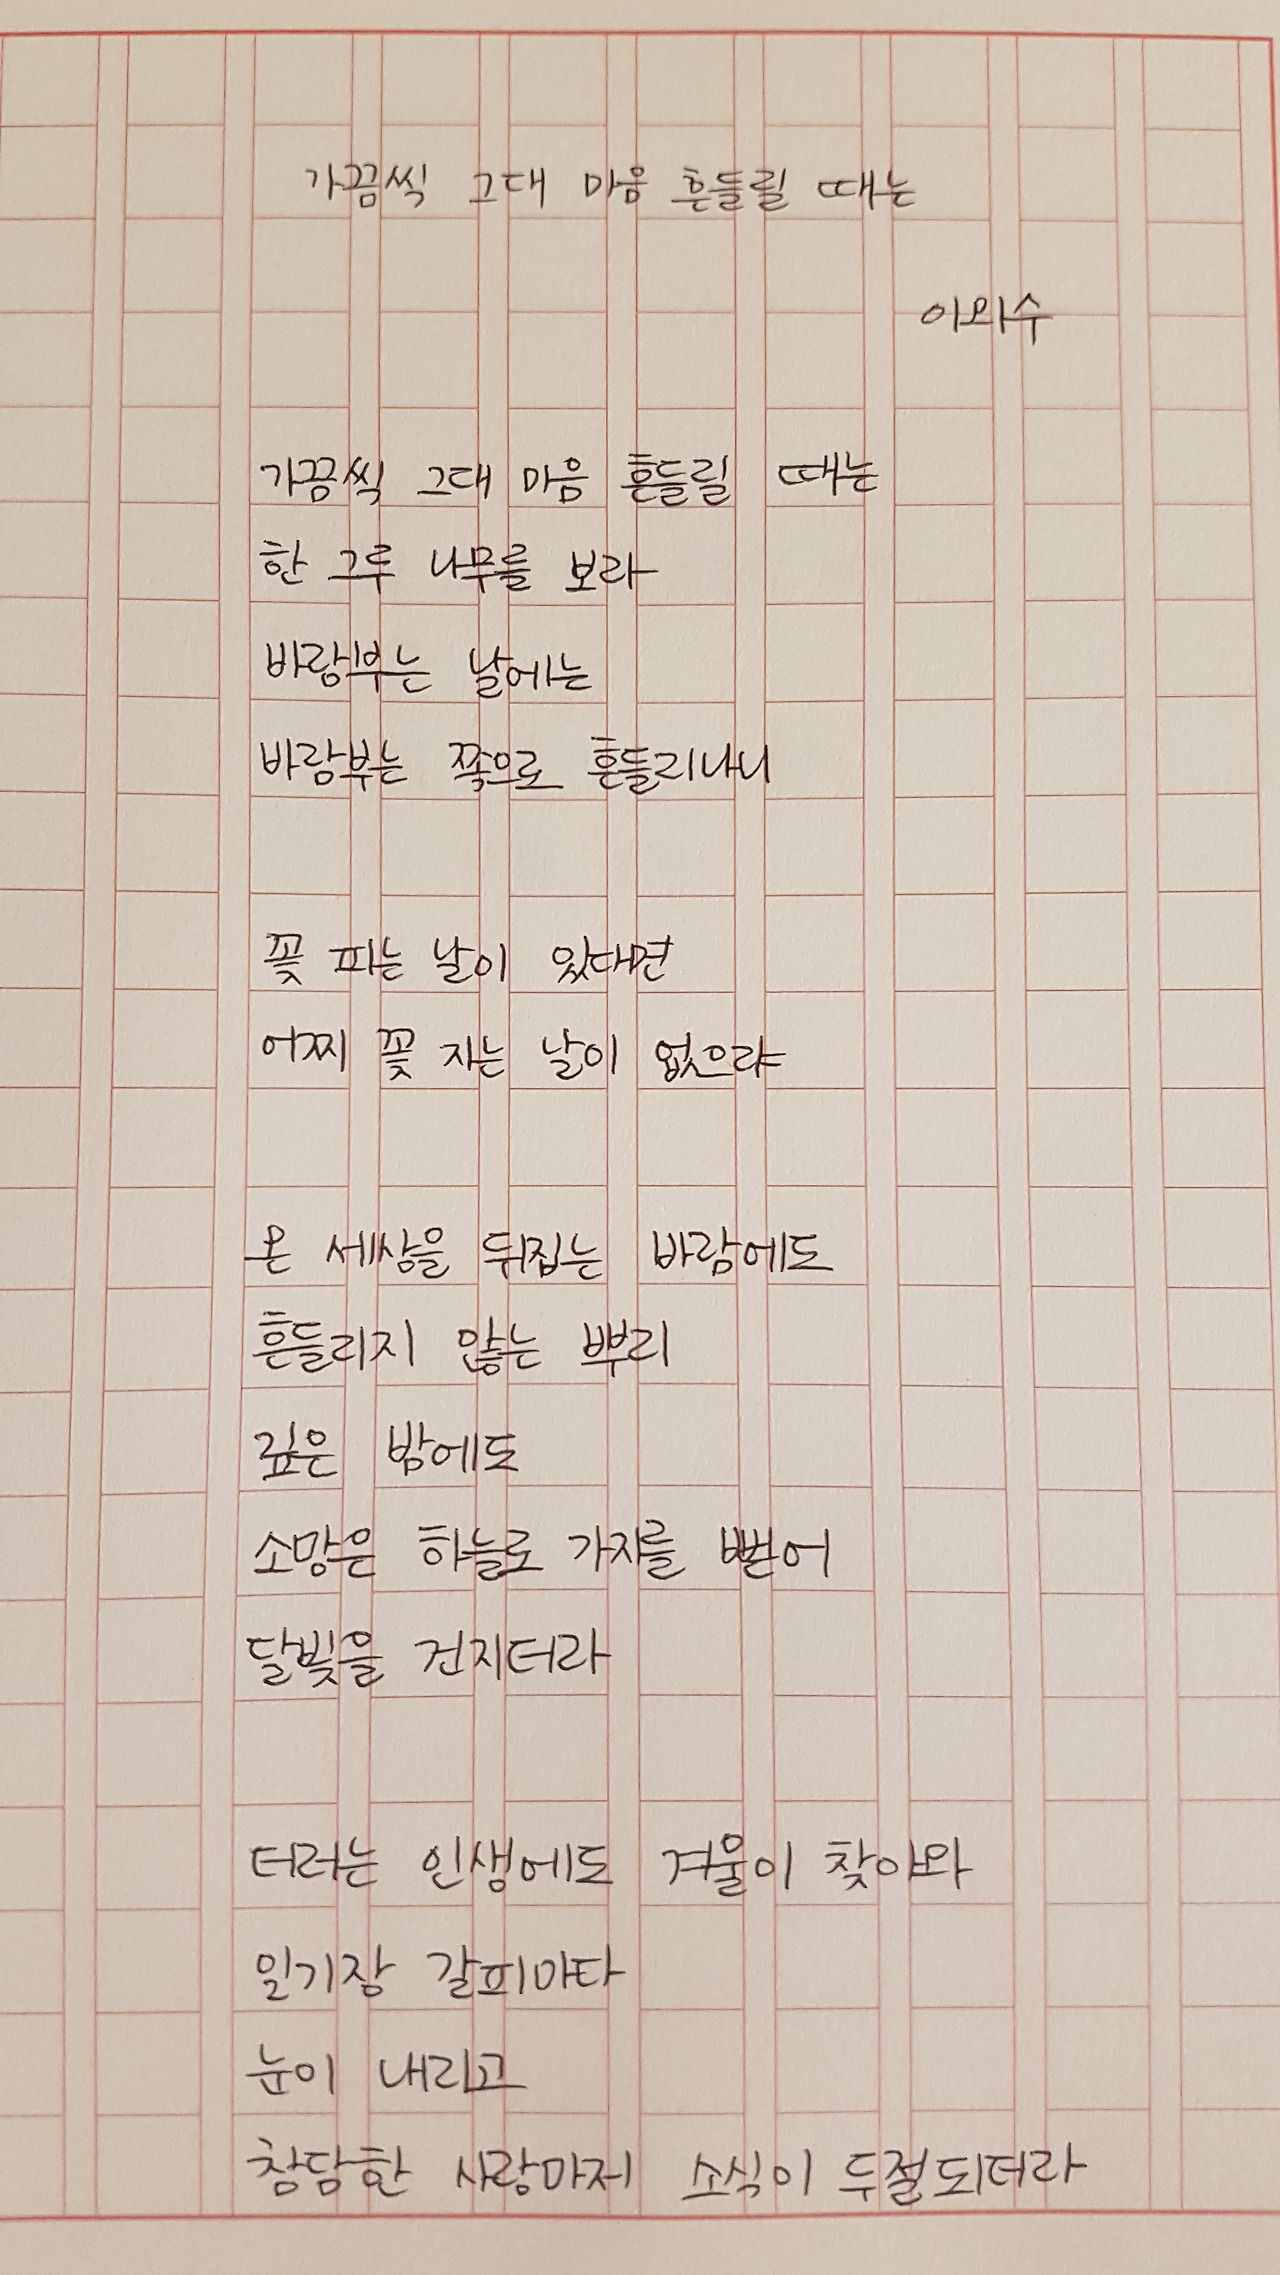 가끔씩 그대 마음 흔들릴 때는
이외수
가끔씩 그대 마음 흔들릴 때는
한 그루 나무를 보라
바람부는 날에는
바람부는 쪽으로 흔들리나니
꽃 피는 날이 있다면
어찌 꽃 지는 날이 없으랴
온 세상을 뒤집는 바람에도
흔들리지 않는 뿌리
깊은 밤에도
소망은 하늘로 가지를 뻗어
달빛을 건지더라
더러는 인생에도 겨울이 찾아와
일기장 갈피마다
눈이 내리고
참담한 사랑마저 소식이 두절되더라